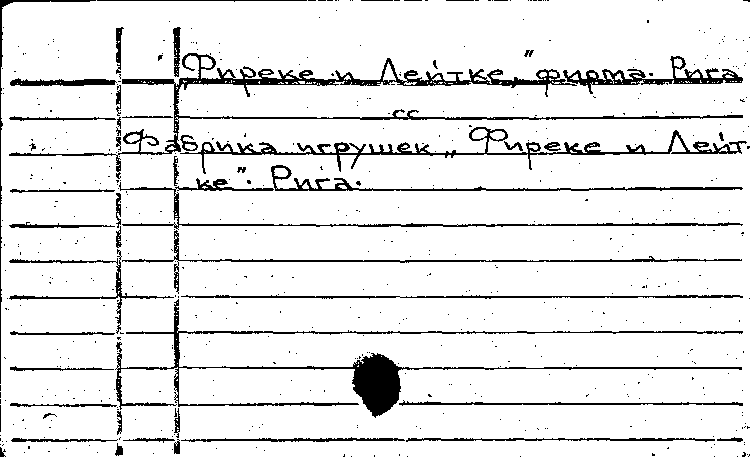 „Фиреке и Лейтке,” фирма. Рига
сс
Фабрика игрушек „Фиреке и Лейт-
ке”. Рига.